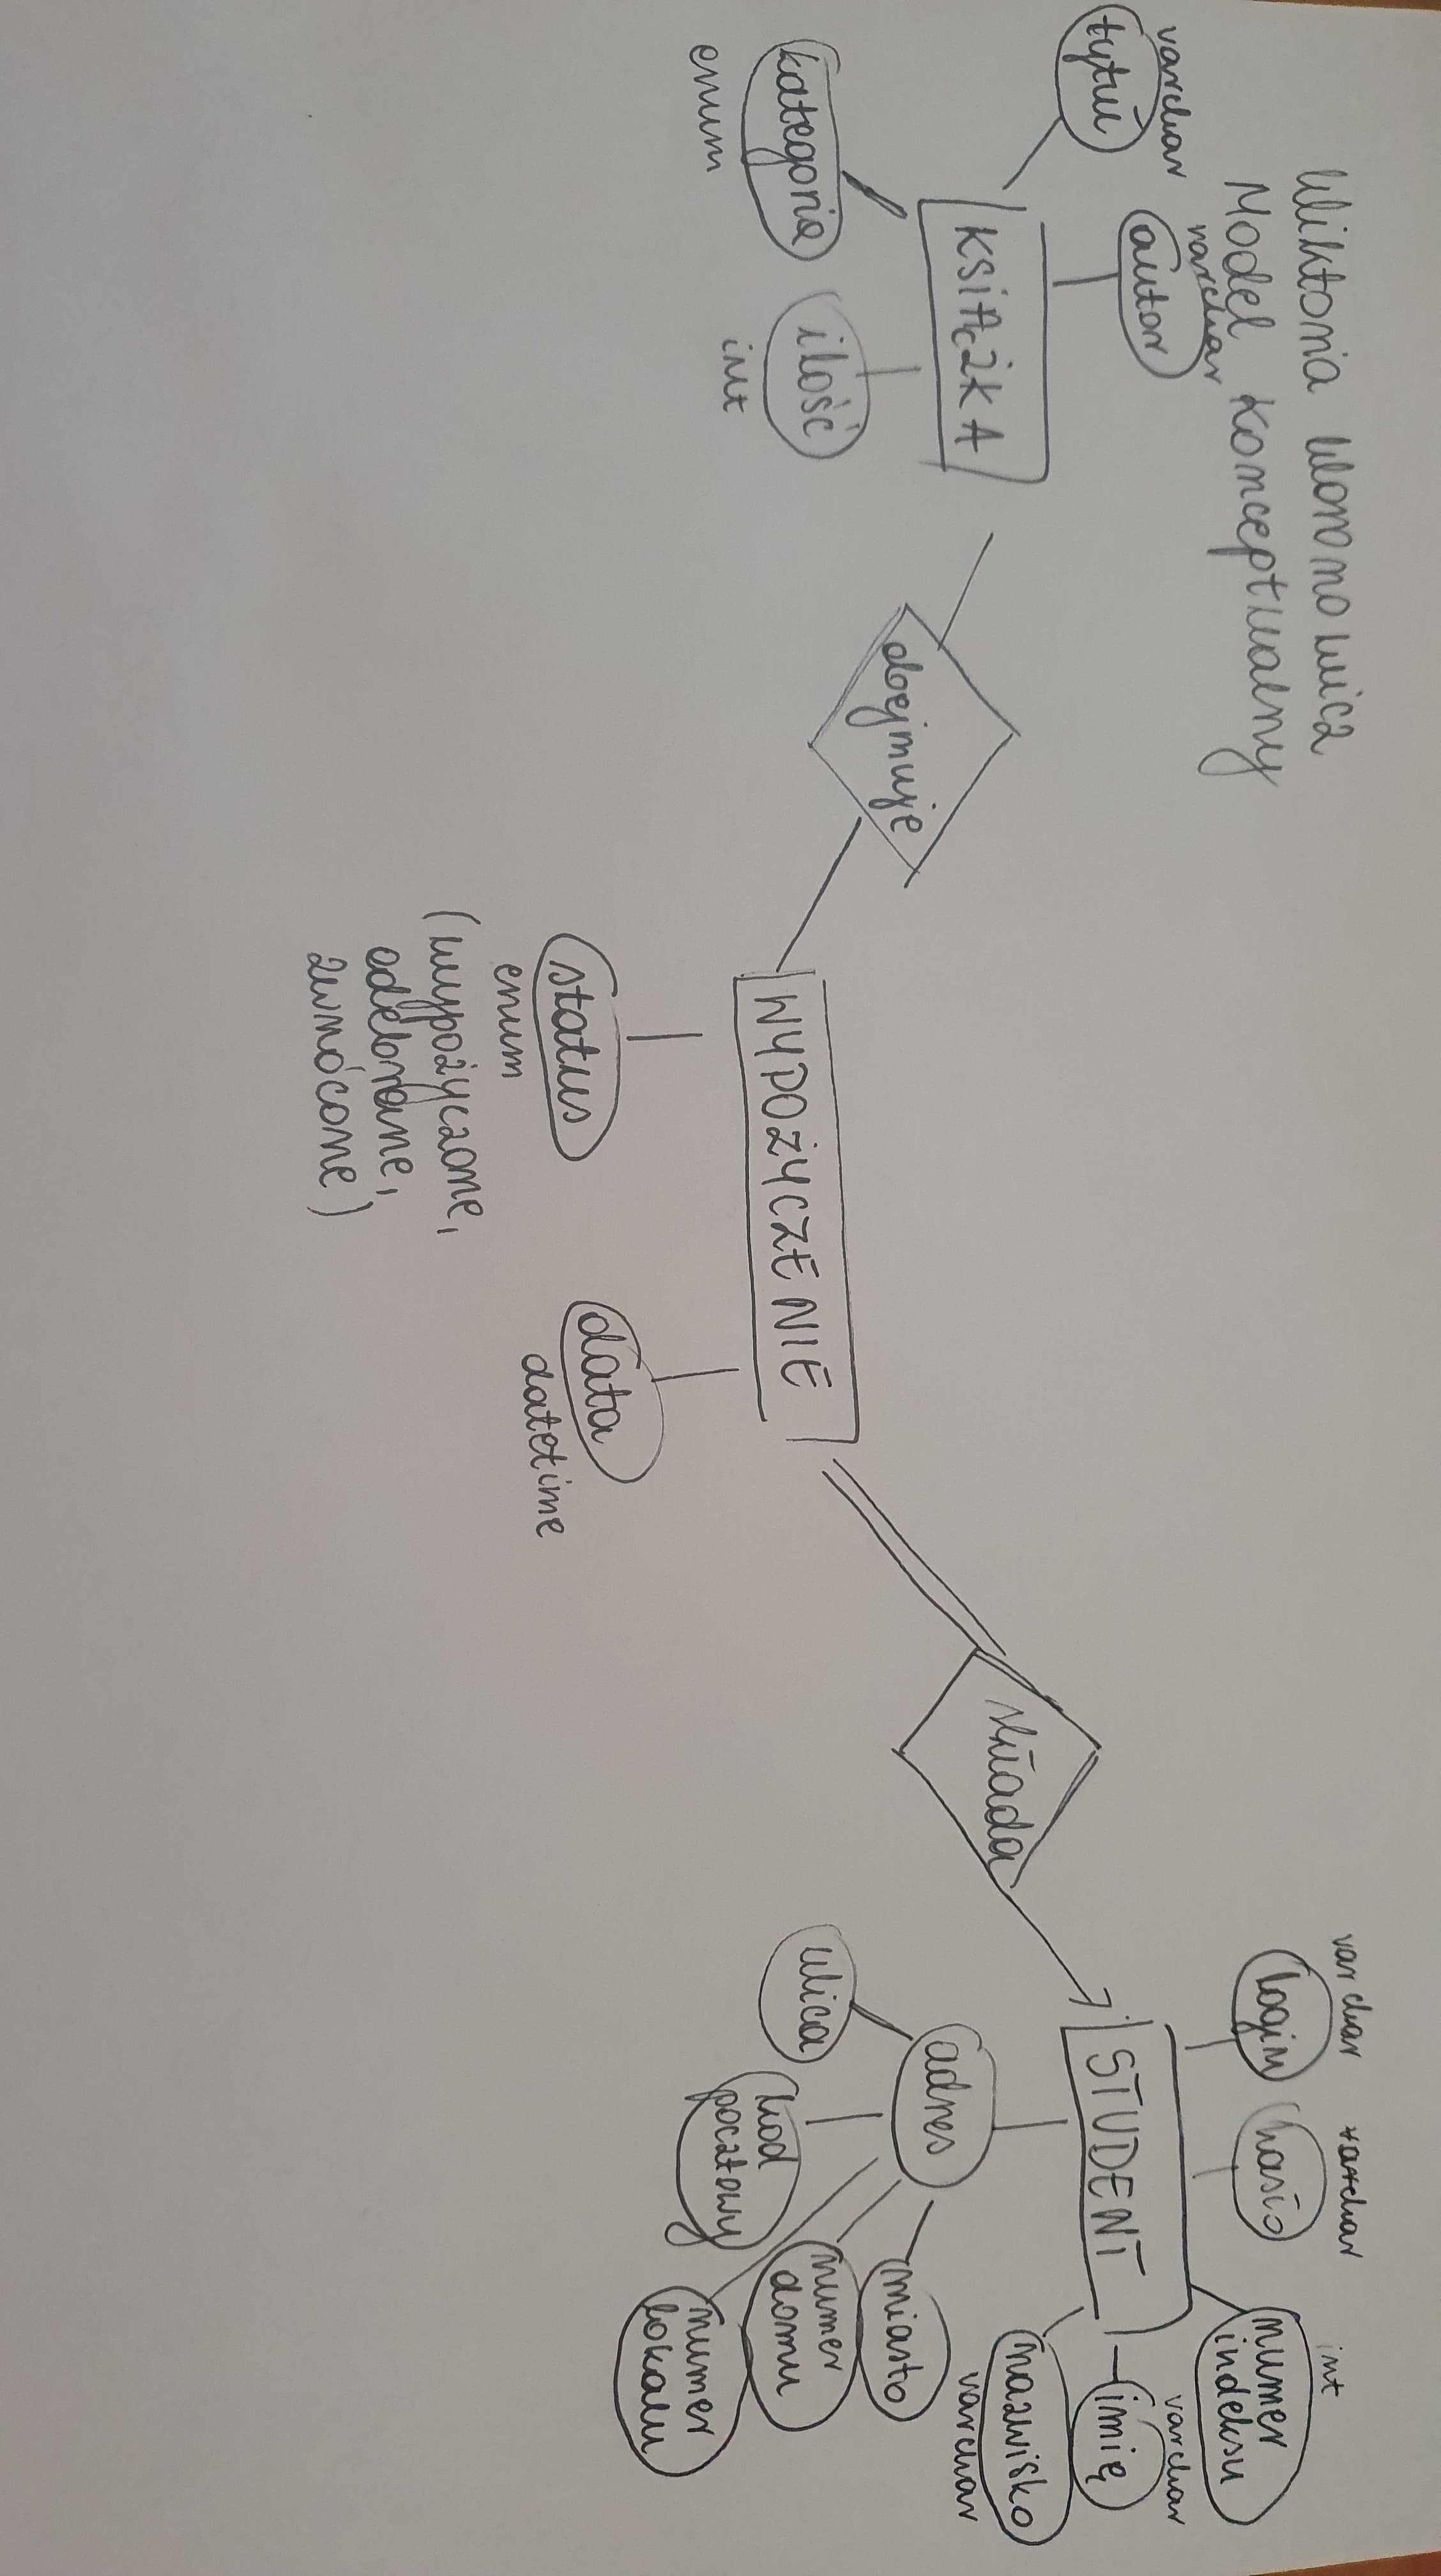 Wiktoria Woronowicz
Model Konceptualny
varchar
tytuł
varchar
autor
KSIĄŻKA
kategoria
enum
ilość
int
obejmuje
WYPOŻYCZENIE
status
enum
(wypożyczone,
odebrane,
zwrócone)
data
datetime
składa
varchar
login
varchar
hasło
int
numer
indeksu
STUDENT
varchar
imię
nazwisko
varchar
adres
miasto
ulica
numer
domu
kod
pocztowy
numer
lokalu